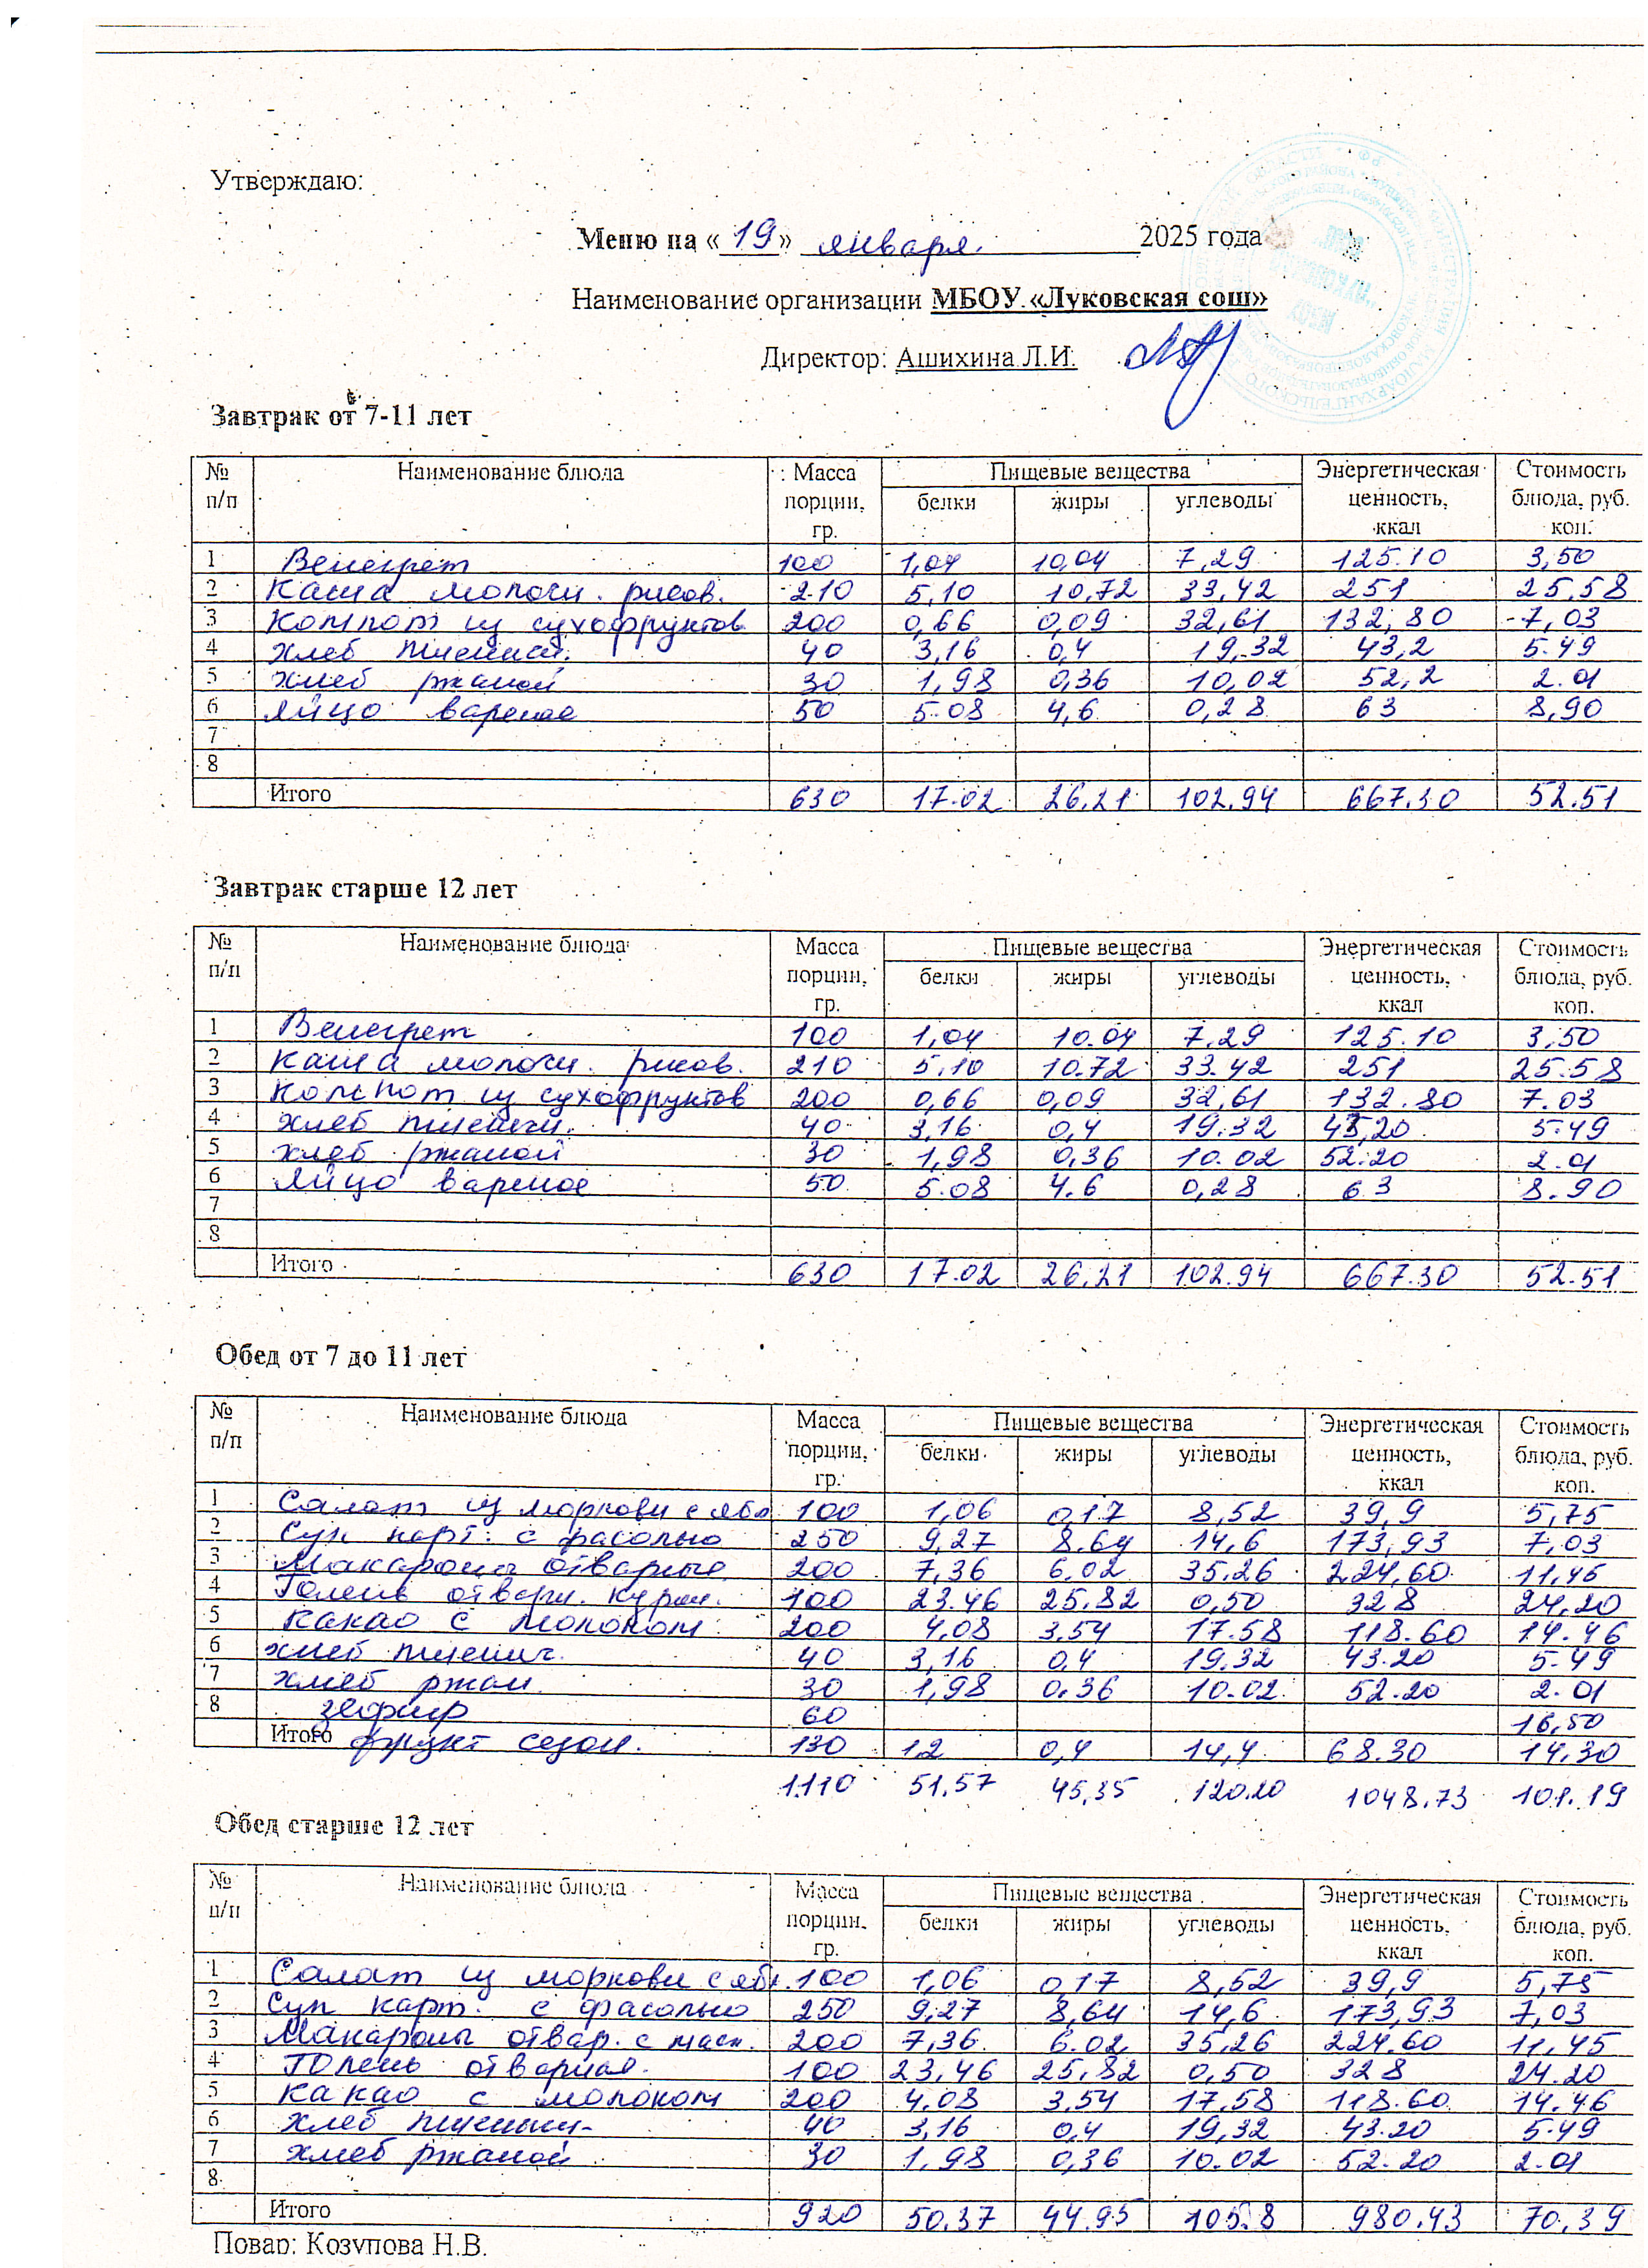 Утверждаю:
Меню на «19» января 2025 года
Наименование организации МБОУ «Луковская сош»
Директор: Ашихина Л.И.
Завтрак от 7-11 лет
№ п/п Наименование блюда Масса порции, гр. Пищевые вещества белки жиры углеводы Энергетическая ценность, ккал Стоимость блюда, руб. коп.
1 Венегрет 100 1,04 10,04 7,29 125.10 3,50
2 Каша молочн. рисов. 210 5,10 10,72 33,42 251 25,58
3 Компот из сухофруктов 200 0,66 0,09 32,61 132,80 7,03
4 Хлеб пшенич. 40 3,16 0,4 19,32 43,2 5.49
5 Хлеб ржаной 30 1,98 0,36 10,02 52,2 2.01
6 Яйцо вареное 50 5.08 4,6 0,28 63 8,90
7
8
Итого 630 17.02 26,21 102,94 667.30 52.51
Завтрак старше 12 лет
№ п/п Наименование блюда Масса порции, гр. Пищевые вещества белки жиры углеводы Энергетическая ценность, ккал Стоимость блюда, руб. коп.
1 Венегрет 100 1,04 10.04 7,29 125.10 3,50
2 Каша молочн. рисов. 210 5,10 10.72 33.42 251 25.58
3 Компот из сухофруктов 200 0,66 0,09 32,61 132.80 7.03
4 Хлеб пшенич. 40 3,16 0,4 19.32 43,20 5.49
5 Хлеб ржаной 30 1,98 0,36 10.02 52.20 2.01
6 Яйцо вареное 50 5.08 4.6 0,28 63 8.90
7
8
Итого 630 17.02 26,21 102.94 667.30 52.51
Обед от 7 до 11 лет
№ п/п Наименование блюда Масса порции, гр. Пищевые вещества белки жиры углеводы Энергетическая ценность, ккал Стоимость блюда, руб. коп.
1 Салат из моркови с ябл 100 1,06 0,17 8,52 39,9 5,75
2 Суп карт. с фасолью 250 9,27 8.64 14,6 173,93 7,03
3 Макароны отварные 200 7,36 6.02 35,26 224,60 11,45
4 Голень отварн. курин. 100 23.46 25,82 0,50 328 24,20
5 Какао с молоком 200 4,08 3,54 17.58 118.60 14.46
6 Хлеб пшенич. 40 3,16 0,4 19,32 43.20 5.49
7 Хлеб ржан 30 1,98 0.36 10.02 52.20 2.01
8 зефир 60 16,50
Итого фрукт сезон. 130 1,2 0,4 14,4 68.30 14,30
1110 51,57 45,35 120.20 1048.73 101.19
Обед старше 12 лет
№ п/п Наименование блюда Масса порции, гр. Пищевые вещества белки жиры углеводы Энергетическая ценность, ккал Стоимость блюда, руб. коп.
1 Салат из моркови с ябл. 100 1,06 0,17 8,52 39,9 5,75
2 Суп карт. с фасолью 250 9,27 8,64 14,6 173,93 7,03
3 Макароны отвар. с масл. 200 7,36 6.02 35,26 224.60 11,45
4 Голень отварная 100 23,46 25,82 0,50 328 24.20
5 Какао с молоком 200 4,08 3,54 17,58 118.60 14.46
6 Хлеб пшенич- 40 3,16 0,4 19,32 43.20 5.49
7 Хлеб ржаной 30 1,98 0,36 10.02 52.20 2.01
8
Итого 920 50.37 44.95 105.8 980.43 70,39
Повар: Козупова Н.В.